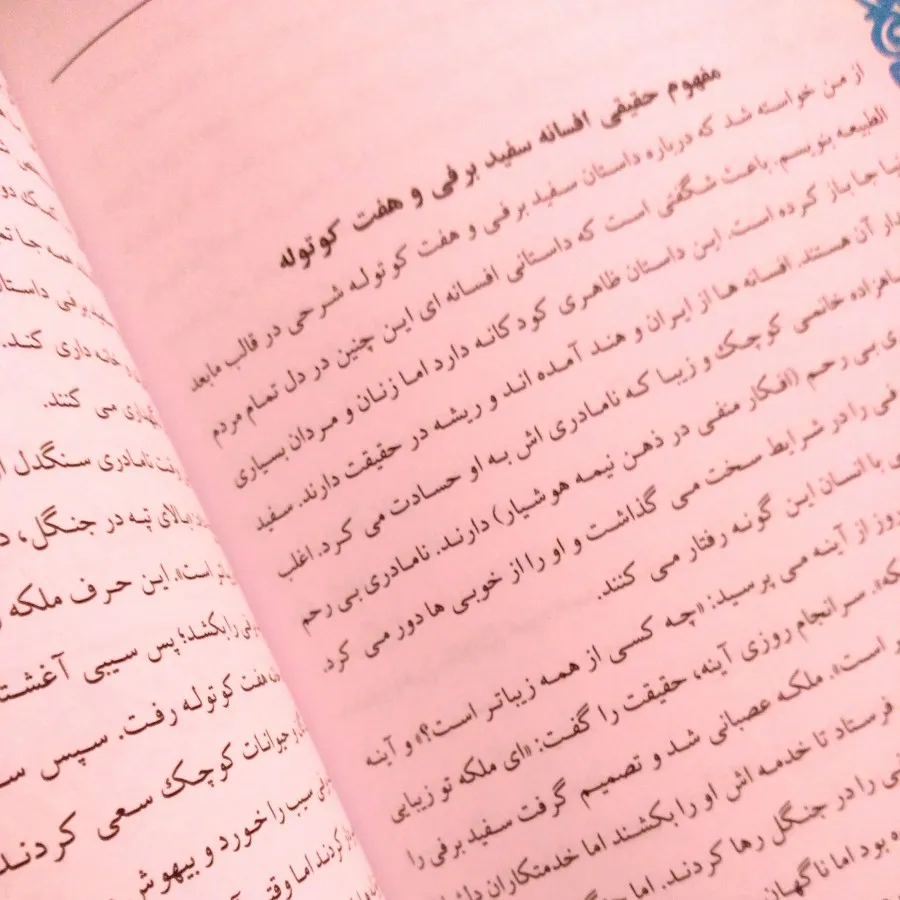 مفهوم حقیقی افسانه سفید برفی و هفت کوتوله
از من خواسته شد که درباره داستان سفید برفی و هفت کوتوله شرحی در قالب مابعد
الطبیعه بنویسم. باعث شگفتی است که داستانی افسانه ای این چنین در دل تمام مردم
جا باز کرده است. این داستان ظاهری کودکانه دارد اما زنان و مردان بسیاری
آن هستند. افسانه ها از ایران و هند آمده اند و ریشه در حقیقت دارند. سفید
خانمی کوچک و زیبا که نامادری اش به او حسادت می کرد. اغلب
بی رحم (افکار منفی در ذهن نیمه هوشیار) دارند. نامادری بی رحم
را در شرایط سخت می گذاشت و او را از خوبی ها دور می کرد.
با انسان این گونه رفتار می کنند.
روز از آینه می پرسید: «چه کسی از همه زیباتر است؟» و آینه
سرانجام روزی آینه، حقیقت را گفت: «ای ملکه تو زیبایی
است». ملکه عصبانی شد و تصمیم گرفت سفید برفی را
فرستاد تا خدمه اش او را بکشند اما خدمتکاران
را در جنگل رها کردند. اما
بود اما ناگهان
برفی داستان
خانه داری کند.
می کنند.
نامادری سنگدل
بالای تپه در جنگل،
است». این حرف ملکه
را بکشد؛ پس سیبی
هفت کوتوله رفت. سپس
کوچک سعی کردند
سیب را خورد و بیهوش
کردند اما وقتی